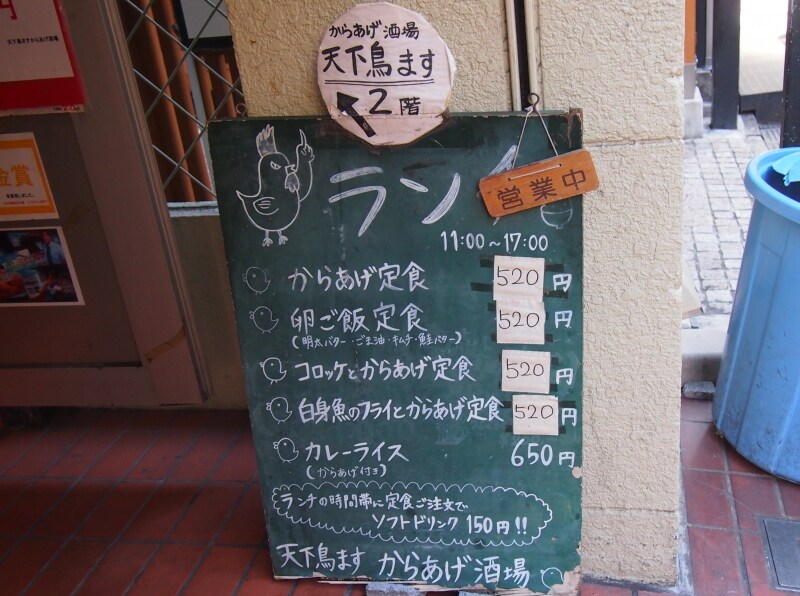 からあげ酒場
天下鳥ます
2階
ラン
営業中
11:00〜17:00
からあげ定食 520円
卵ご飯定食 520円
(明太バター・ごま油・キムチ・鮭バター)
コロッケとからあげ定食 520円
白身魚のフライとからあげ定食 520円
カレーライス 650円
(からあげ付き)
ランチの時間帯に定食ご注文で
ソフトドリンク 150円!!
天下鳥ます からあげ酒場
円
金賞